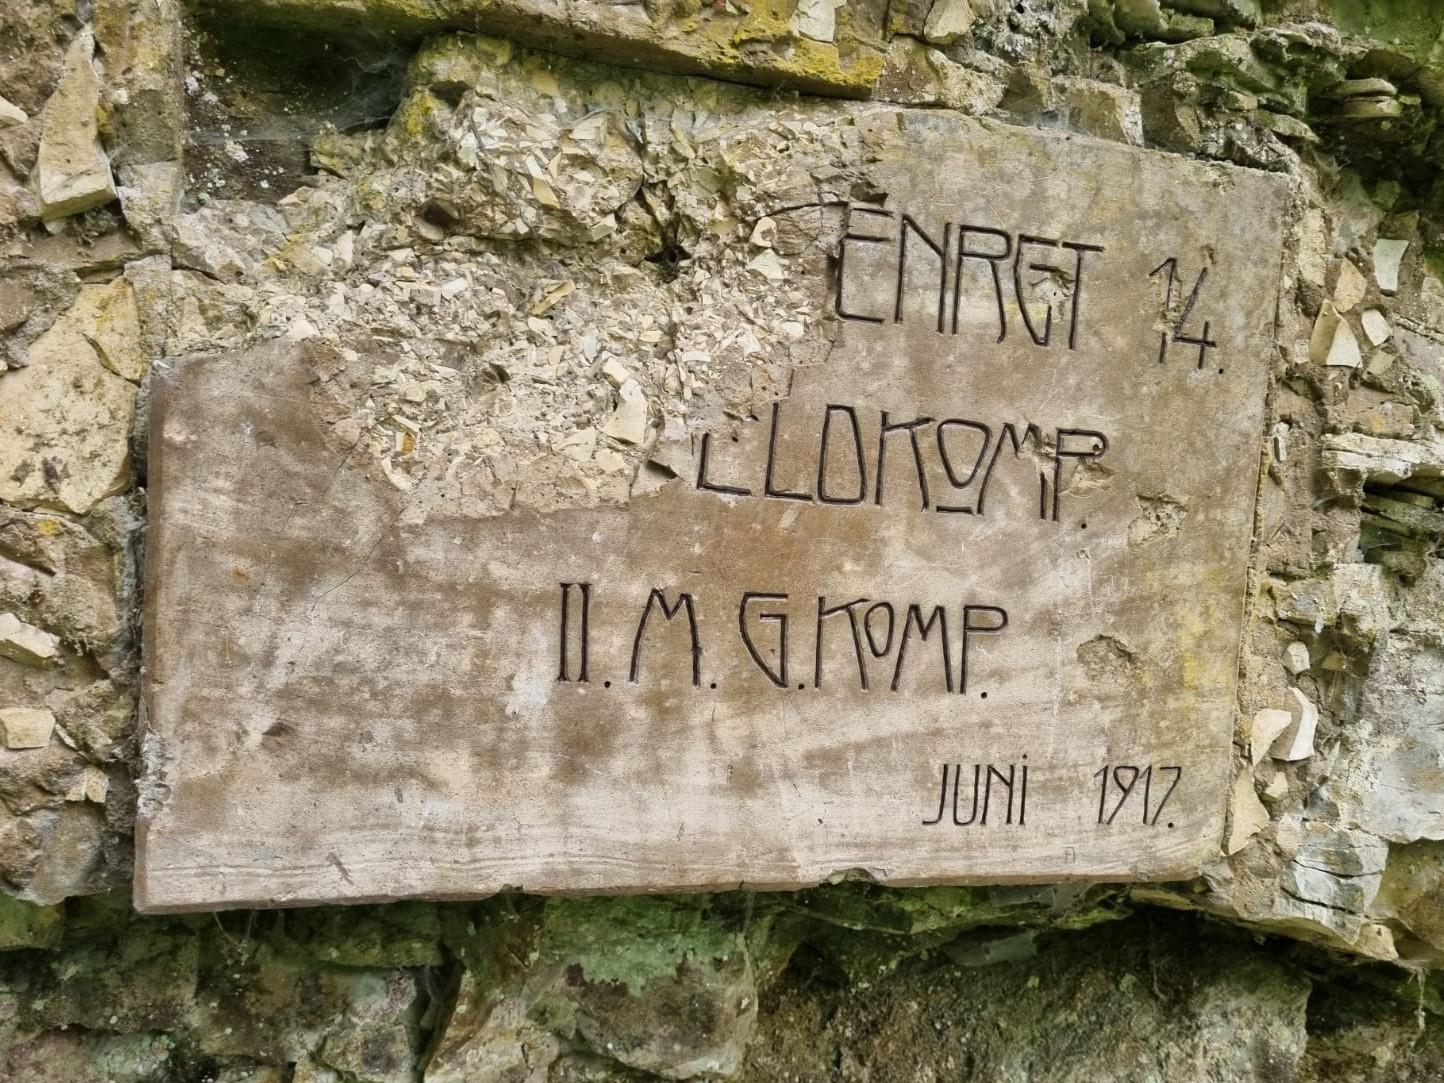 ENRGT 14.
LLDKOMP.
II. M. G. KOMP.
JUNI 1917.